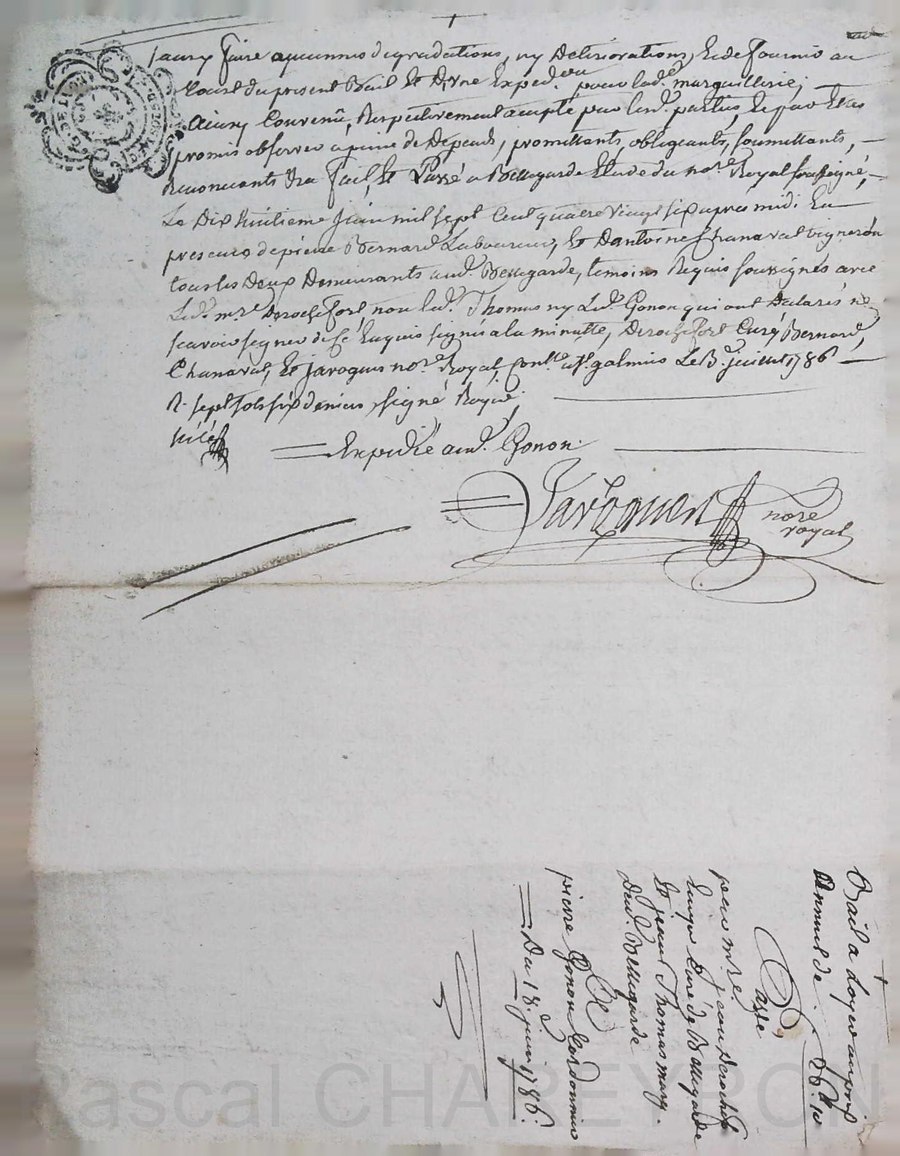 sans y faire aucunnes degradations, ny Deteriorations, Et de fournir au
Coust du present Bail Et D'une Exped.on pour lad.e marguillerie;
Ainsy Convenû, Respectivement accepté par lesd. parties, Et par Elles
promis observer a peine de Dépends, promettants, obligeants, soumettants,
Renonceants &a fait, Et Passé a Bellegarde Etude du no.re Royal soussigné,
Le Dix huitieme juin mil sept Cent quatre vingt six apres midi En
presence de pierre Bernard Laboureur, Et d'antoine Chanaval vigneron
tous les Deux Demeurants aud. Bellegarde, temoins Requis soussignés avec
Led. m.re Derochefort non led. Thomas ny Led. Gonon qui ont Declarés ne
scavoir signer de ce Enquis signés a la minutte, Derochefort Curé, Bernard,
Chanaval, Et jaroquen no.re Royal, Con.lle a St. galmier Le 3.e juillet 1786
R. sept sols six deniers signé
Expedié aud. Gonon
Jaroquen no.re
royal
Bail a Loyer au prix
Annuel de 26.tt 10
Passé
par m.re jean Derochefort
Curé de Bellegarde
Et jean Thomas marg.
Dud. Bellegarde
A
pierre Gonon Cordonnier
Du 18. juin 1786.
Pascal CHAREYRON